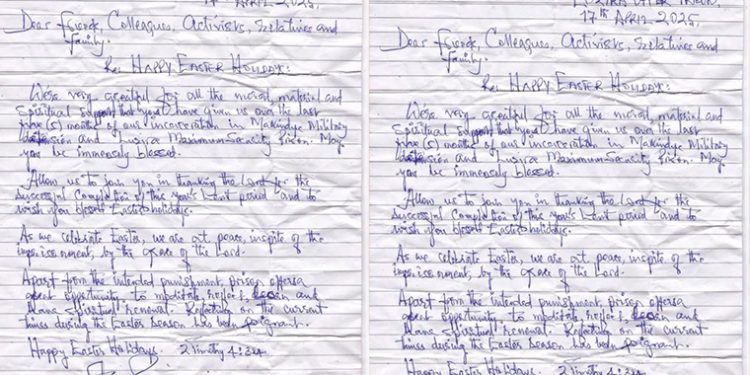 17th APRIL 2025.
Dear friends, Colleagues, Activists, Relatives and
family.
Re: HAPPY EASTER HOLIDAY:
We're very grateful for all the moral, material and
Spiritual support that you have given us over the last
five(5) months of our incarceration in Makindye Military
detension and Luzira Maximum Security Prison. May
you be immensely blessed.
Allow us to join you in thanking the Lord for the
successful Completion of this year's Lent period and to
wish you blessed Easter holidays.
As we celebrate Easter, we are at peace, inspite of the
imprisonment, by the grace of the Lord.
Apart from the intended punishment, prison offers a
great opportunity to meditate, and
Spiritual renewal. Reflecting on the current
times during the Easter Season has been poignant.
Happy Easter Holidays. 2 Timothy 4:
LUZIRA UPPER PRISON,
17th APRIL 2025,
Dear friends, Colleagues, Activists, Relatives and
family.
Re: HAPPY EASTER HOLIDAY:
We're very grateful for all the moral, material and
Spiritual support that you have given us over the last
five(5) months of our incarceration in Makindye Military
detension and Luzira Maximum Security Prison. May
you be immensely blessed.
Allow us to join you in thanking the Lord for the
successful Completion of this year's Lent period and to
wish you blessed Easter holidays.
As we celebrate Easter, we are at peace, inspite of the
imprisonment, by the grace of the Lord.
Apart from the intended punishment, prison offers a
great opportunity to meditate, and
Spiritual renewal. Reflecting on the current
times during the Easter Season has been poignant.
Happy Easter Holidays. 2 Timothy 4: